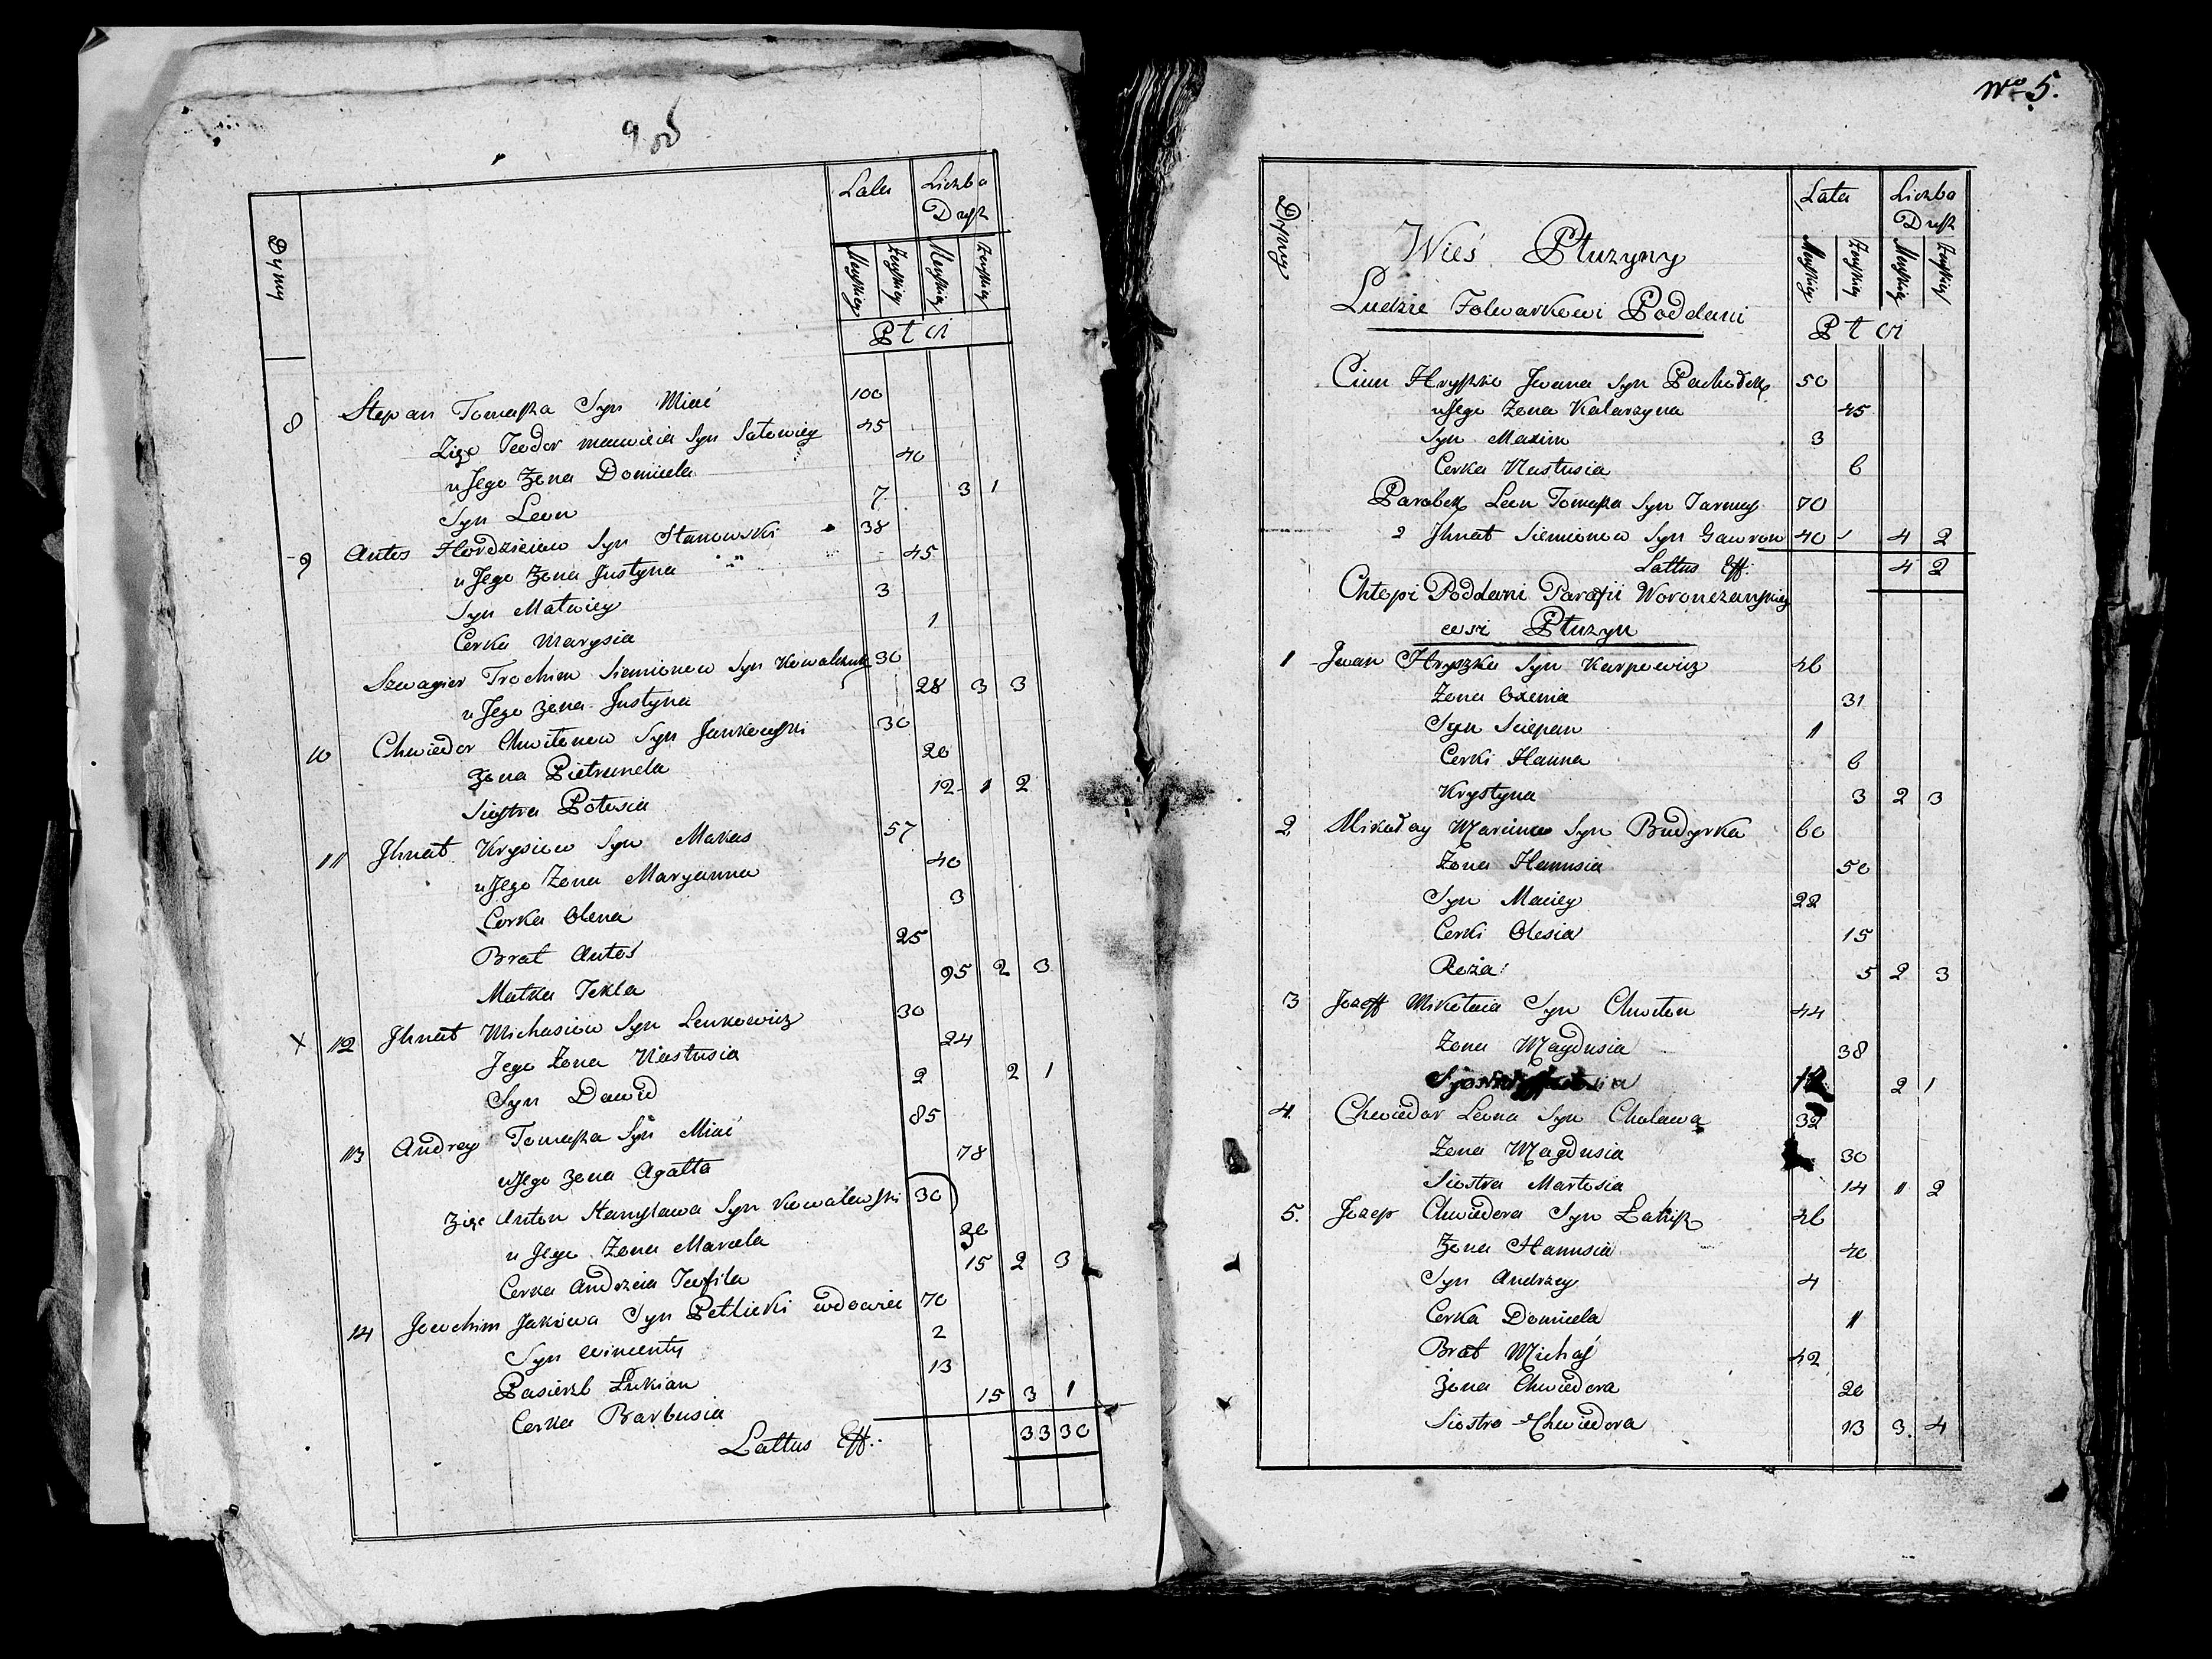 Dymy
Lata
Liczba Dusz
Męskiey
Żeńskiey
Męskiey
Żeńskiey
Płci
8 Stepan Tomasza Syn Mić 100
Zięć Teodor Syn 45
u Jego Żona Domicela 40
Syn Leon 7 3 1
9 Antos Hordzieiew Syn Stanowski 38
u Jego Żona Justyna 45
Syn Matwiey 3
Cerka Marysia 1
Szwagier Trochim Siemionow Syn Kowalczuk 30
u Jego Żona Justyna 28 3 3
10 Chwiedor Chwitonow Syn Jankowski 30
Żona Pietrunela 20
Siostra Połosia 12 1 2
11 Jhnat Krysiow Syn Makas 57
u Jego Żona Maryanna 40
Cerka Olena 3
Brat Antoś 25
Matka Tekla 95 2 3
X 12 Jhnat Michasiow Syn Lenkowicz 30
Jego Żona Nastusia 24
Syn Dawid 2 2 1
13 Andrey Tomasza Syn Mić 85
u Jego Żona Agatta 78
Zięć Anton Stanisława Syn Kowalewski 30
u Jego Żona Marcela 20
Cerka Andrzeia Teofila 15 2 3
14 Joachim Jakowa Syn Petlicki wdowiec 70
Syn Wincenty 2
Pasierb Łukian 13
Cerka Barbusia 15 3 1
Lattus Eff: 33 30
No 5.
Dymy
Wieś Płuzyny
Ludzie Folwarkowi Poddani
Lata
Liczba Dusz
Męskiey
Żeńskiey
Męskiey
Żeńskiey
Płci
Hryszko Jwana Syn 50
u Jego Żona Katarzyna 45
Syn Maxim 3
Cerka Nastusia 6
Parobek Leon Tomasza Syn 70
2 Jhnat Siemionow Syn Gawron 40 4 2
Lattus Eff: 4 2
Chłopi Poddani Parafii Woronczanskiey
wsi Płuzyn
1 Jwan Hryszka Syn Karpowicz 46
Żona Oxenia 31
Syn Sciepan 1
Cerki Hanna 6
Krystyna 3 2 3
2 Mikołay Marcina Syn Budyrka 60
Żona Hanusia 50
Syn Maciey 22
Cerki Olesia 15
Roża 5 2 3
3 Jozeff Mikołaia Syn Chwiton 44
Żona Magdusia 38
2 1
4. Chwiedor Leona Syn Cholawa 32
Żona Magdusia 30
Siostra Martosia 14 1 2
5. Jozep Chwiedora Syn 46
Żona Hanusia 40
Syn Andrzey 4
Cerka Domicela 11
Brat Michaś 42
Żona Chwiedora 20
Siostra Chwiedora 13 3 4